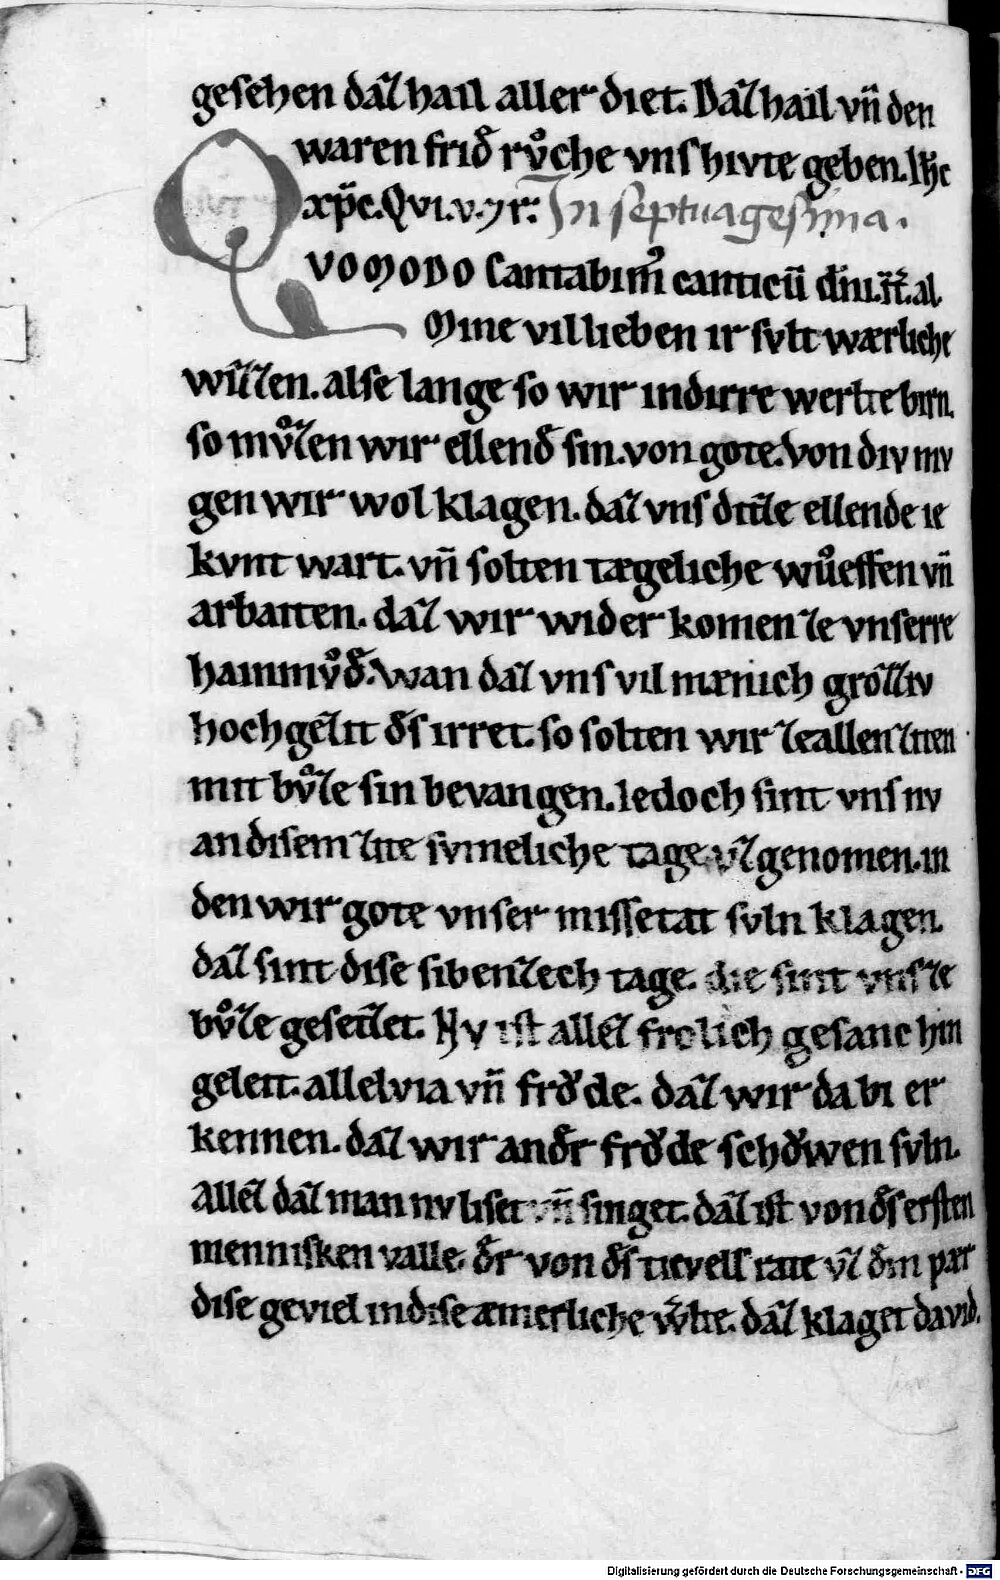 gesehen daꝫ hail aller diet. Daꝫ hail vn̄ den
waren frid᷑ rvͦche vns hivte geben. Ih̄c
xp̄c. Qvi. v. ⁊ r̄. In septuagesima.
QVOMODO Cantabim᷒ canticū dn̄i. ⁊ r̄l. al
Mine vil lieben ir svlt wærliche
wiꝫꝫen. alse lange so wir indirre werlte birn.
so mvͦꝫen wir ellend᷑ sin. von gote. von div mv
gen wir wol klagen. daꝫ vns ditꝫe ellende ie
kvnt wart. vn̄ solten tægeliche wuͦeffen vn̄
arbaiten. daꝫ wir wider komen ꝫe vnserre
haimmvͦd᷑. Wan daꝫ vns vil mænich groꝫꝫiv
hochgeꝫit d᷑s irret. so solten wir ꝫeallen ꝫiten
mit bvͦꝫe sin bevangen. Iedoch sint vns nv
an disem ꝫite svmeliche tage vꝫgenomen. in
den wir gote vnser missetat svln klagen.
daꝫ sint dise sibenꝫech tage. die sint vns ꝫe
bvͦꝫe gesetꝫet. Nv ist alleꝫ frolich gesanc hin
geleit. allelvia vn̄ froͮde. daꝫ wir da bi er
kennen. daꝫ wir and᷑r froͮde schoͮwen svln.
Alleꝫ daꝫ man nv liset vn̄ singet. daꝫ ist von d᷑s ersten
mennisken valle. d᷑r von d᷑s tievels rate vꝫ d᷑m par
dise geviel in dise æmerliche w᷑lte. daꝫ klaget david.
Digitalisierung gefördert durch die Deutsche Forschungsgemeinschaft - DFG